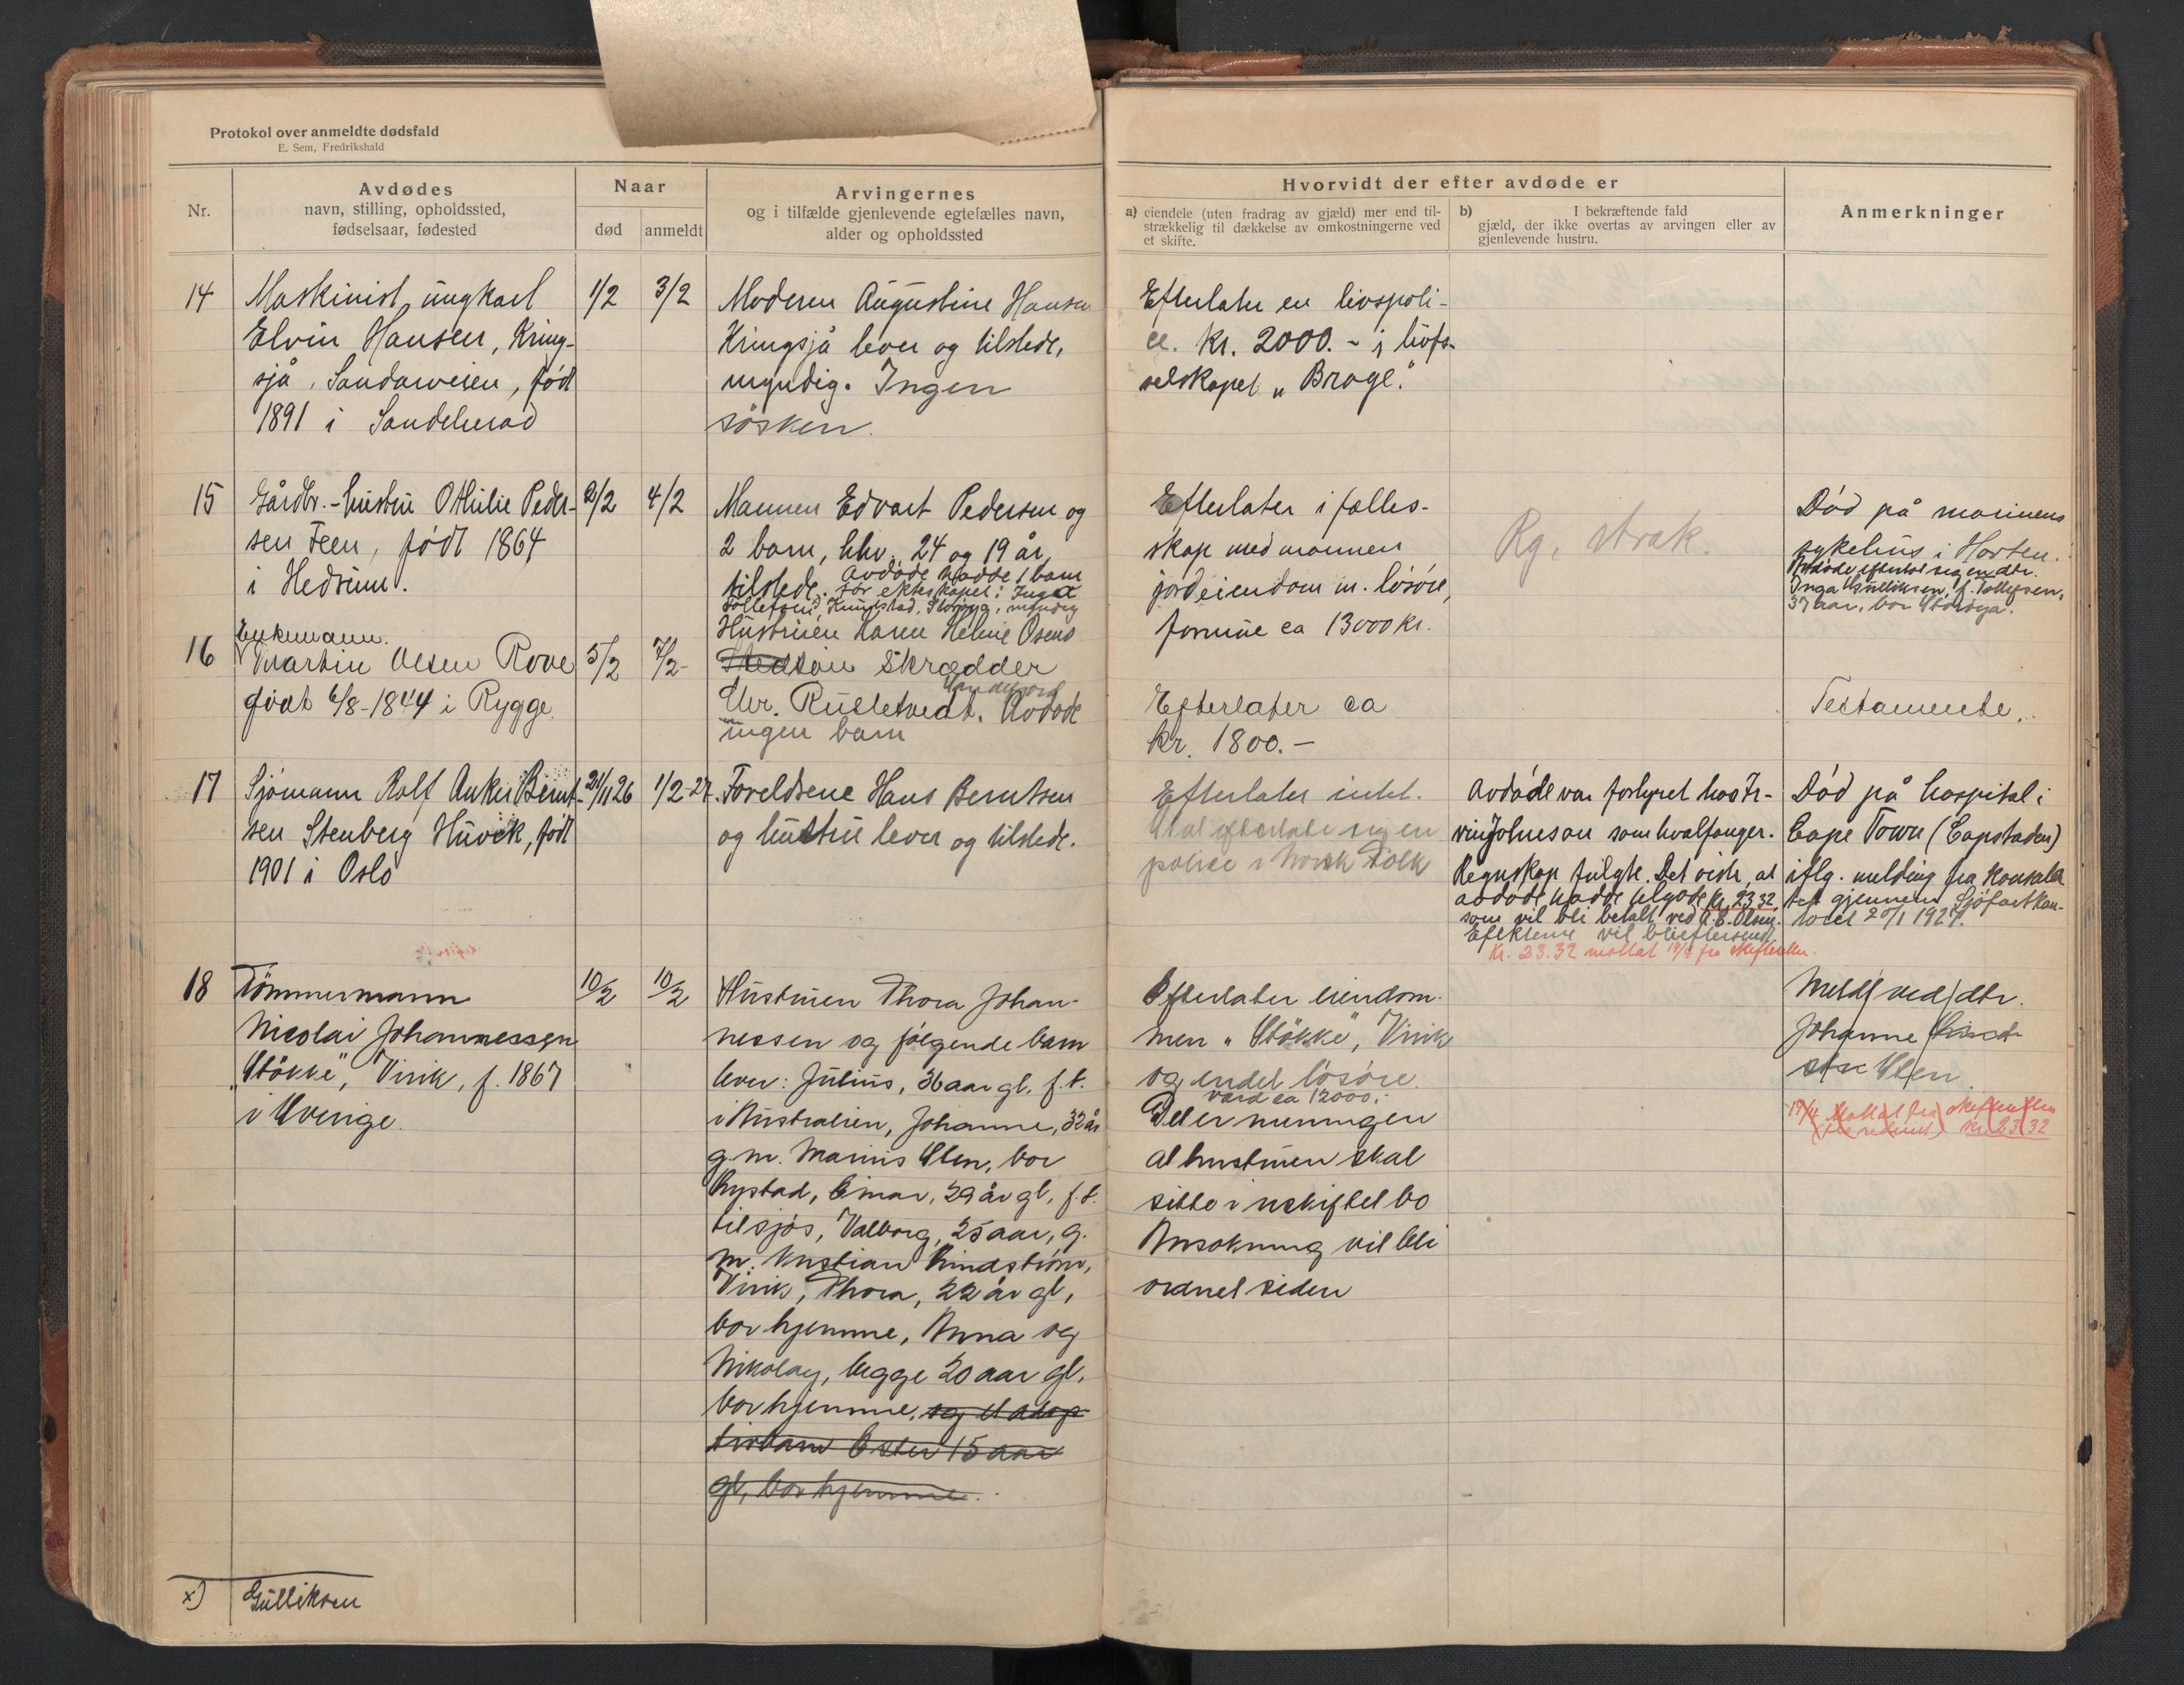 Protokol over anmeldte dødsfald
E. Sem, Fredrikshald
Nr.
Avdødes
navn, stilling, opholdssted,
fødselsaar, fødested
Naar
død
anmeldt
Arvingernes
og i tilfælde gjenlevende egtefælles navn,
alder og opholdssted
Hvorvidt der efter avdøde er
a) eiendele (uten fradrag av gjæld) mer end til-
strækkelig til dækkelse av omkostningerne ved
et skifte.
b) I bekræftende fald
gjæld, der ikke overtas av arvingen eller av
gjenlevende hustru.
Anmerkninger
14
Maskinist, ungkarl
Elvin Hansen, Kring-
sjå, Sandarveien, født
1891 i Sandeherad
1/2
3/2
Moderen Augustine Hansen
Kringsjå lever og tilstede,
myndig. Ingen
søsken.
Efterlater en livspoli-
ce. kr. 2000.- i livfs-
selskapet "Brage."
15
Gårdbr.-hustru Othilie Peder-
sen Feen, født 1864
i Hedrum.
2/2
4/2
Mannen Edvart Pedersen og
2 barn, hhv. 24 og 19 år,
tilstede. Avdøde hadde 1 barn
før ekteskapet: Inga x
Tollefsen, Knudstad, Slorøya, myndig
Efterlater i felles-
skap med mannen
jordeiendom m. løsøre,
formue ca 13000 kr.
Rg. strak.
Død på marinens
sykehus i Horten.
Avdøde efterlot sig en dtr.
Inga Gulliksen, f. Tollefsen,
37 aar, bor Slorøya.
16
Enkemann.
Martin Olsen Rove
født 6/8-1844 i Rygge.
5/2
7/2-
Hustruen Karen Heline Osens
Stedsøn Skrædder
Chr. Rusletvedt. Avdøde
Sandefjord
ingen barn
Efterlater ca
kr. 1800.-
Testamente.
17
Sjømann Rolf Anker Bernt-
sen Stenberg Huvik, født
1901 i Oslo
21/11 26
1/2-27.
Foreldrene Hans Berntsen
og hustru lever og tilstede.
Efterlater intet.
Skal efterlate sig en
police i Norsk Folk
Avdøde var forhyret hos Ir-
vin Johnson som hvalfanger.
Regnskap fulgte. Det viste, at
avdøde hadde tilgode kr. 23.32,
som vil bli betalt ved A.E. Olsen.
Efektene vil bli eftersendt
Kr. 23.32 mottat 19/4 fra Skifteretten.
Død på hospital i
Cape Town (Capstaden)
iflg. melding fra konsula
tet gjennem Sjøfartskon-
toret 20/1 1927.
18
Tømmermann
Nicolai Johannessen
"Støkke", Virik, f. 1867
i Sverige.
10/2
10/2
Hustruen Thora Johan-
nessen og følgende barn
lever: Julius, 36 aar gl. f.t.
i Australien, Johanne, 32 år
g.m. Marius Sten, bor
Nystad, Einar, 29 år gl, f.t.
tilsjøs, Valborg, 25 aar, g.
m. Kristian Lindstrøm,
Virik, Thora, 22 år gl,
bor hjemme, Anna og
Nikolay, begge 20 aar gl,
bor hjemme, og et adop
tivbarn Ester 15 aar
gl, bor hjemme.
Efterlater eiendom-
men "Støkke", Virik
og endel løsøre.
værd ca 12000.-
Det er meningen
at hustruen skal
sitte i uskiftet bo
Ansøkning vil bli
ordnet siden
Meldt ved dtr.
Johanne
Sten.
19/4 Mottat fra Skifteretten
kr. 23.32
x) Gulliksen